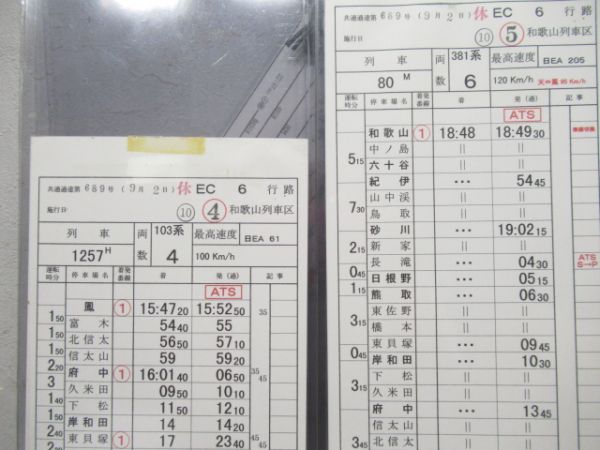 共通通達第 689号 (9月2日) 休 EC 6 行路
施行日 ⑩ ④ 和歌山列車区
列車 両数 103系 最高速度 BEA 61
1257H 4 100 Km/h
運転時分 停車場名 着発番線 着 発(通) 記事
ATS
鳳 ① 15:47 20 15:52 50 35
1 50 富木 54 40 55
1 50 北信太 56 50 57 10
1 50 信太山 59 59 20
2 20 府中 ① 16:01 40 06 50 35 45
3 久米田 09 50 10 10
1 40 下松 11 50 12 10
1 50 岸和田 14 14 20
2 40 東貝塚 ① 17 23 40 45 45
共通通達第 689号 (9月2日) 休 EC 6 行路
施行日 ⑩ ⑤ 和歌山列車区
列車 両数 381系 最高速度 BEA 205
80M 6 120 Km/h 天⇔鳳 95 Km/h
運転時分 停車場名 着発番線 着 発(通) 記事
ATS
和歌山 ① 18:48 18:49 30
中ノ島 || ||
5 15 六十谷 || ||
紀伊 … 54 45
山中渓 || ||
7 30 鳥取 || ||
砂川 … 19:02 15
新家 || ||
2 15 長滝 … 04 30 ATS S→P
0 45 日根野 … 05 15
1 15 熊取 … 06 30
東佐野 || ||
3 15 橋本 || ||
東貝塚 … 09 45
0 45 岸和田 … 10 30
下松 || ||
久米田 || ||
3 15 府中 … 13 45
信太山 || ||
3 45 北信太 || ||